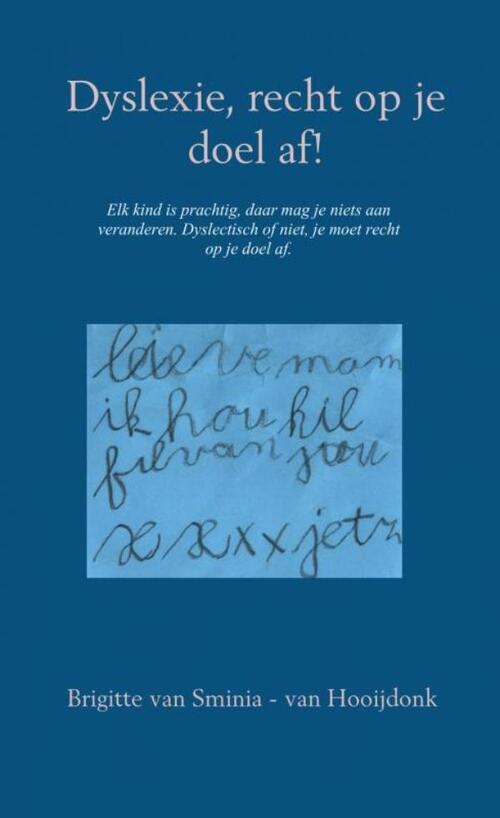 Dyslexie, recht op je
doel af!
Elk kind is prachtig, daar mag je niets aan
veranderen. Dyslectisch of niet, je moet recht
op je doel af.
mam
ik hou hil
van jou
xxxx jet
Brigitte van Sminia - van Hooijdonk